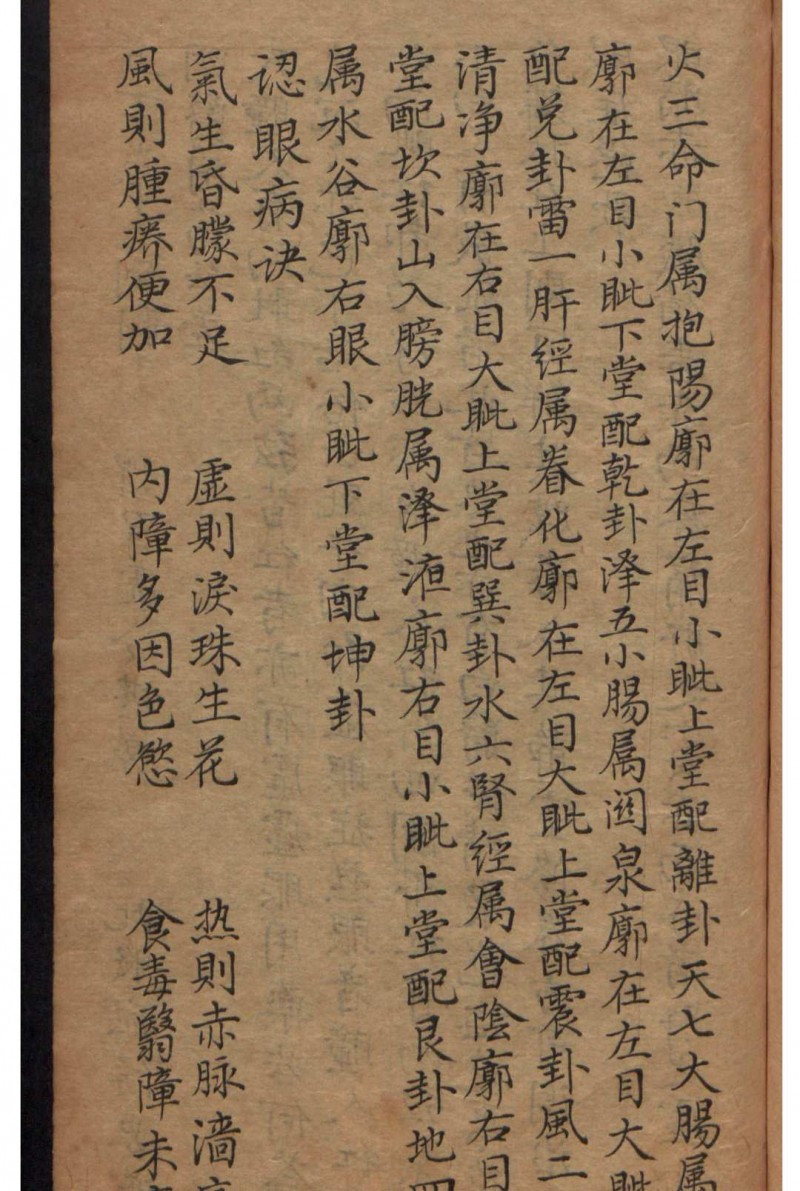 火三命门属抱陽廓在左目小眦上堂配離卦天七大腸属
廓在左目小眦下堂配乾卦泽五小腸属関泉廓在左目大眦
配兑卦雷一肝經属眷化廓在左目大眦上堂配震卦風二
清净廓在右目大眦上堂配巽卦水六腎經属會陰廓右目
堂配坎卦山入膀胱属泽液廓右目小眦上堂配艮卦地四
属水谷廓右眼小眦下堂配坤卦
认眼病诀
氣生昏矇不足 虚則淚珠生花 热則赤脉
風則腫痹便加 内障多因色慾 食毒翳障未